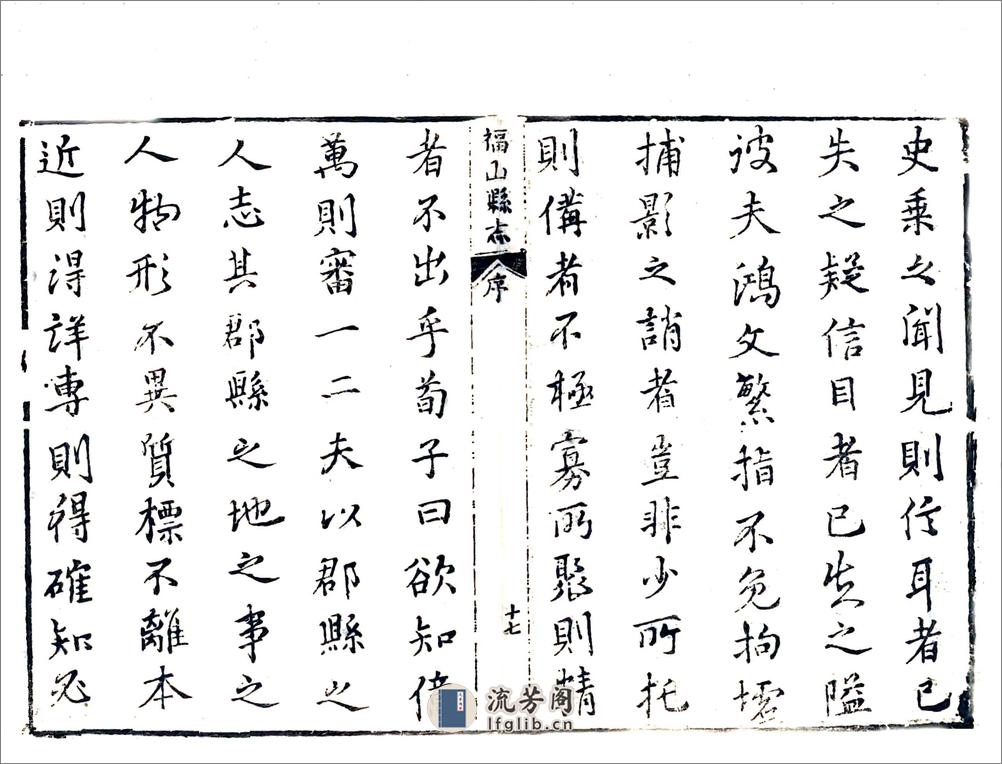 史乗之聞見則信耳者已
失之疑信目者已失之隘
彼夫鴻文繁指不免拘墟
捕影之誚者豈非少所托
則備者不極寡所聚則精
福山縣志
序
十七
者不出乎荀子曰欲知億
萬則審一二夫以郡縣之
人志其郡縣之地之事之
人物形不異質標不離本
近則得詳專則得確知必
流芳阁
lfglib.cn